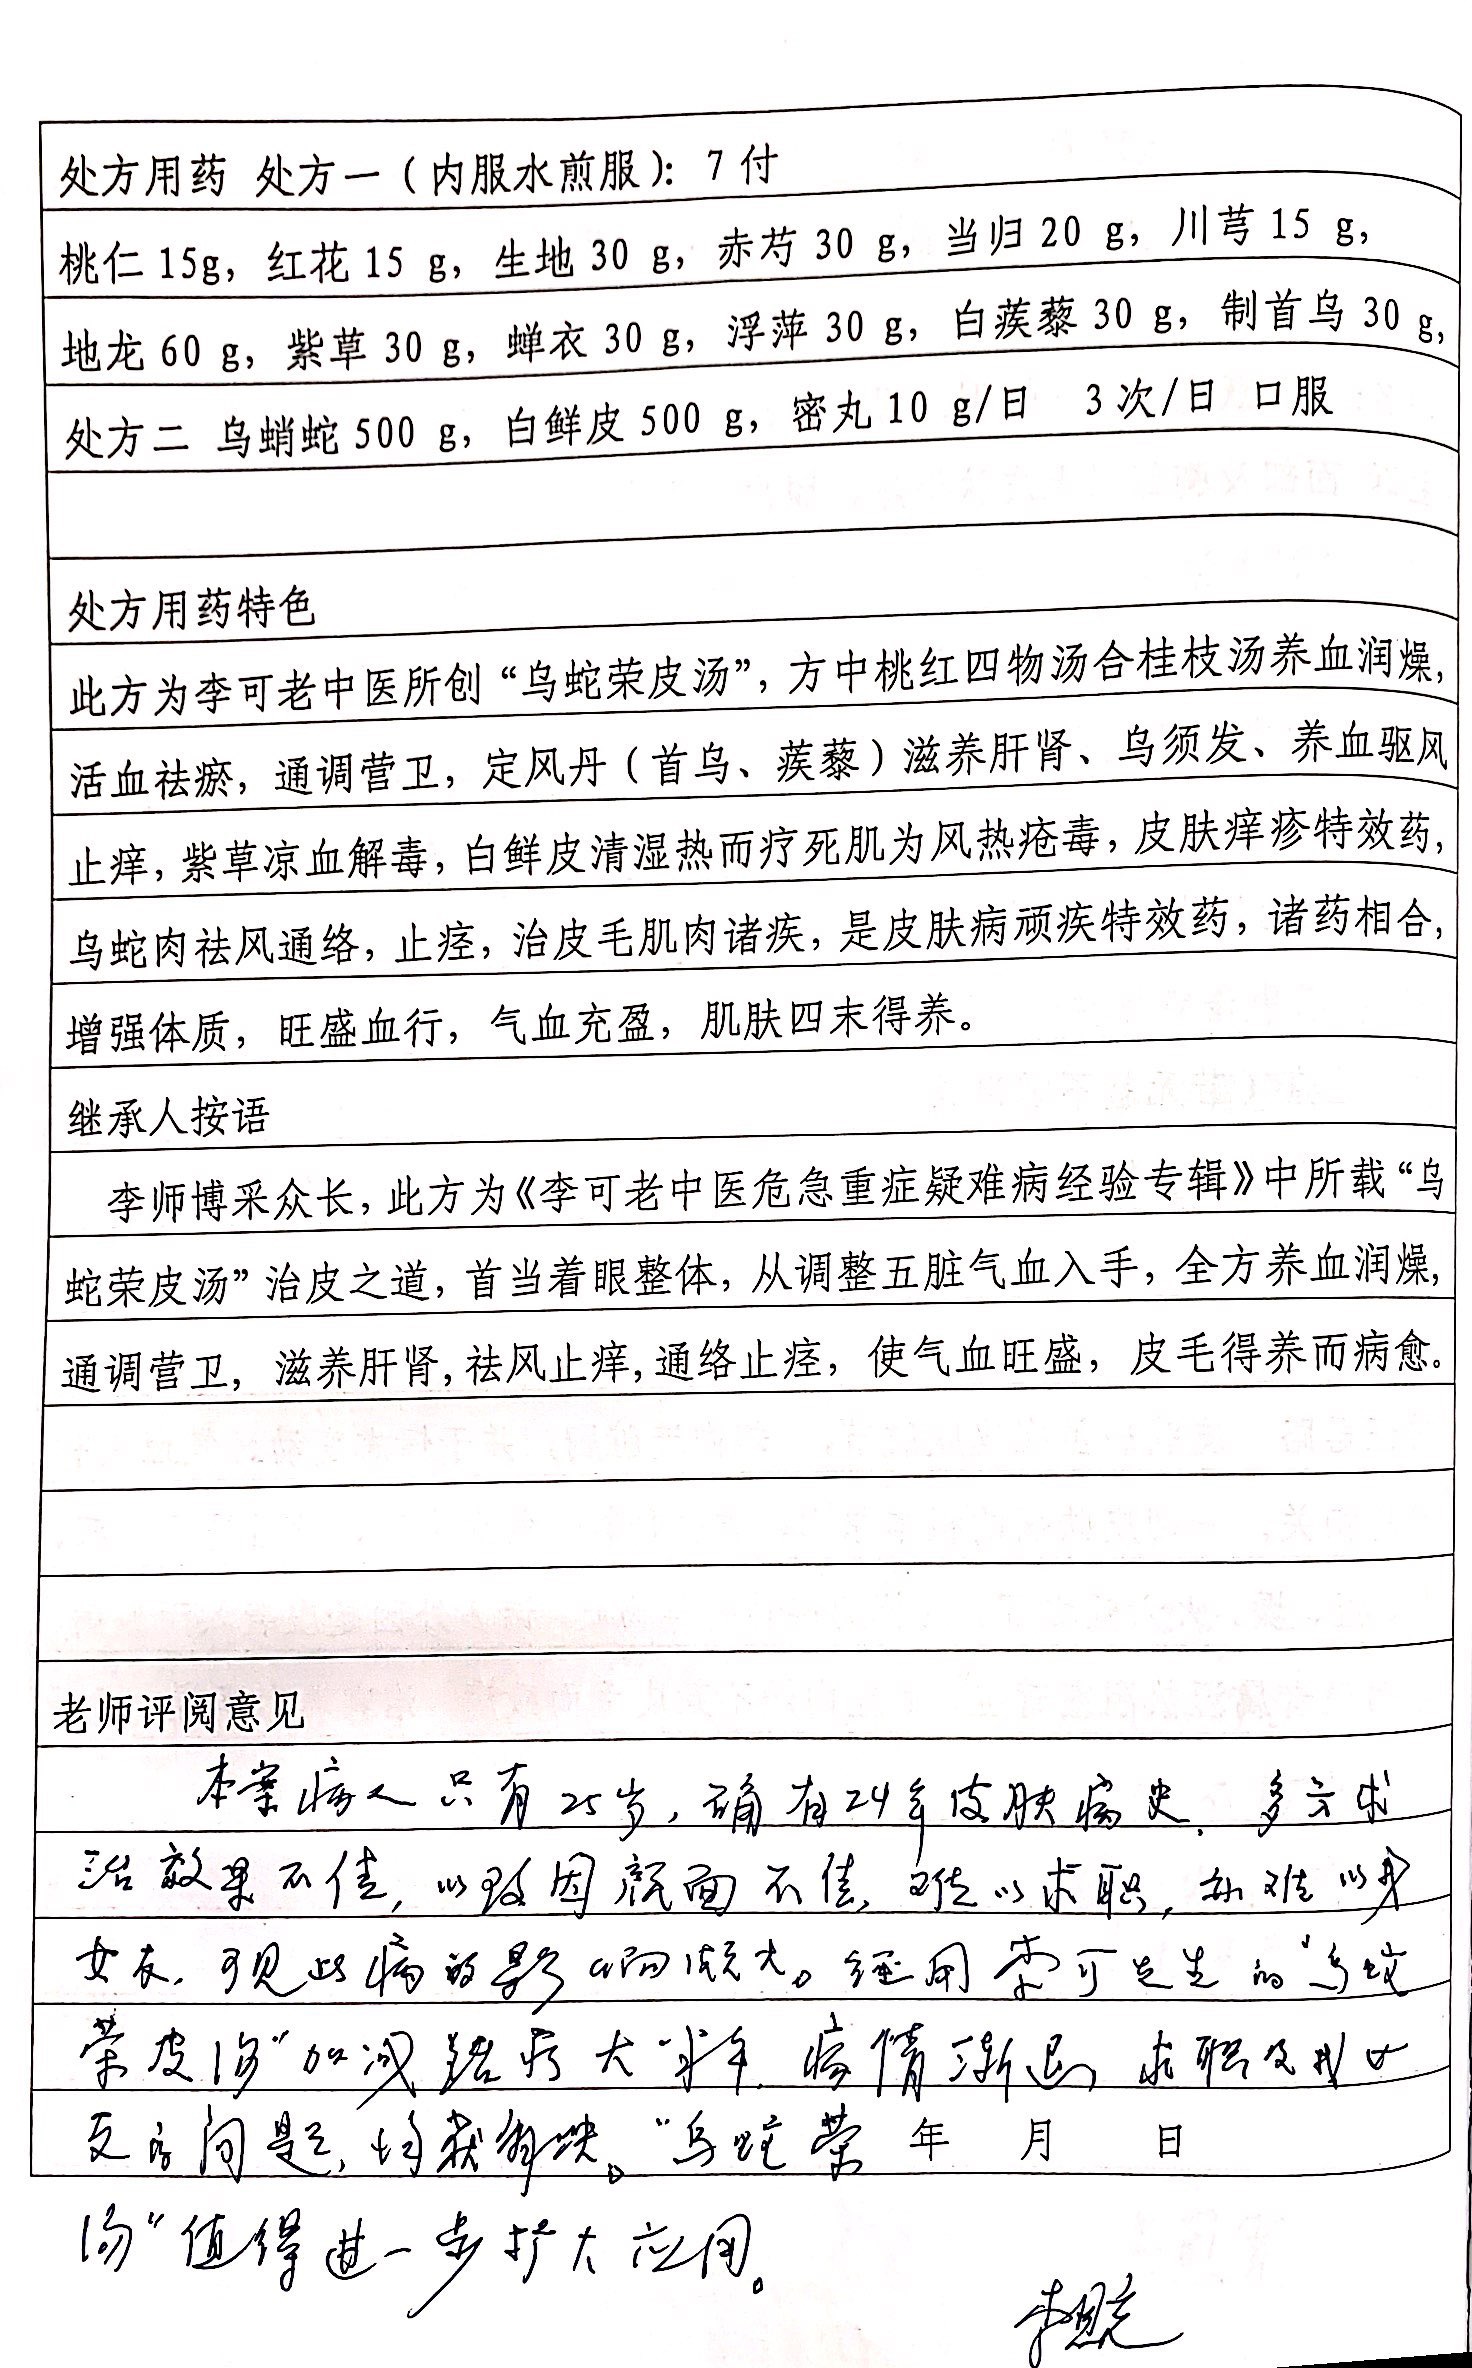 处方用药 处方一（内服水煎服）：7付
桃仁15g，红花15 g，生地30 g，赤芍30 g，当归20 g，川芎15 g，
地龙60 g，紫草30 g，蝉衣30 g，浮萍30 g，白蒺藜30 g，制首乌30 g，
处方二 乌蛸蛇500 g，白鲜皮500 g，密丸10 g/日 3次/日 口服
处方用药特色
此方为李可老中医所创“乌蛇荣皮汤”，方中桃红四物汤合桂枝汤养血润燥，
活血祛瘀，通调营卫，定风丹（首乌、蒺藜）滋养肝肾、乌须发、养血驱风
止痒，紫草凉血解毒，白鲜皮清湿热而疗死肌为风热疮毒，皮肤痒疹特效药，
乌蛇肉祛风通络，止痉，治皮毛肌肉诸疾，是皮肤病顽疾特效药，诸药相合，
增强体质，旺盛血行，气血充盈，肌肤四末得养。
继承人按语
李师博采众长，此方为《李可老中医危急重症疑难病经验专辑》中所载“乌
蛇荣皮汤”治皮之道，首当着眼整体，从调整五脏气血入手，全方养血润燥，
通调营卫，滋养肝肾，祛风止痒，通络止痉，使气血旺盛，皮毛得养而病愈。
老师评阅意见
本案病人只有25岁，确有24年皮肤病史，多方求
治效果不佳，以致因颜面不佳，难以求职，亦难以找
女友，可见此病的影响颇大。经用李可先生的“乌蛇
荣皮汤”加减治疗大半年，病情渐退，求职及找女
友等问题，均获解决。“乌蛇荣 年 月 日
汤”值得进一步扩大应用。